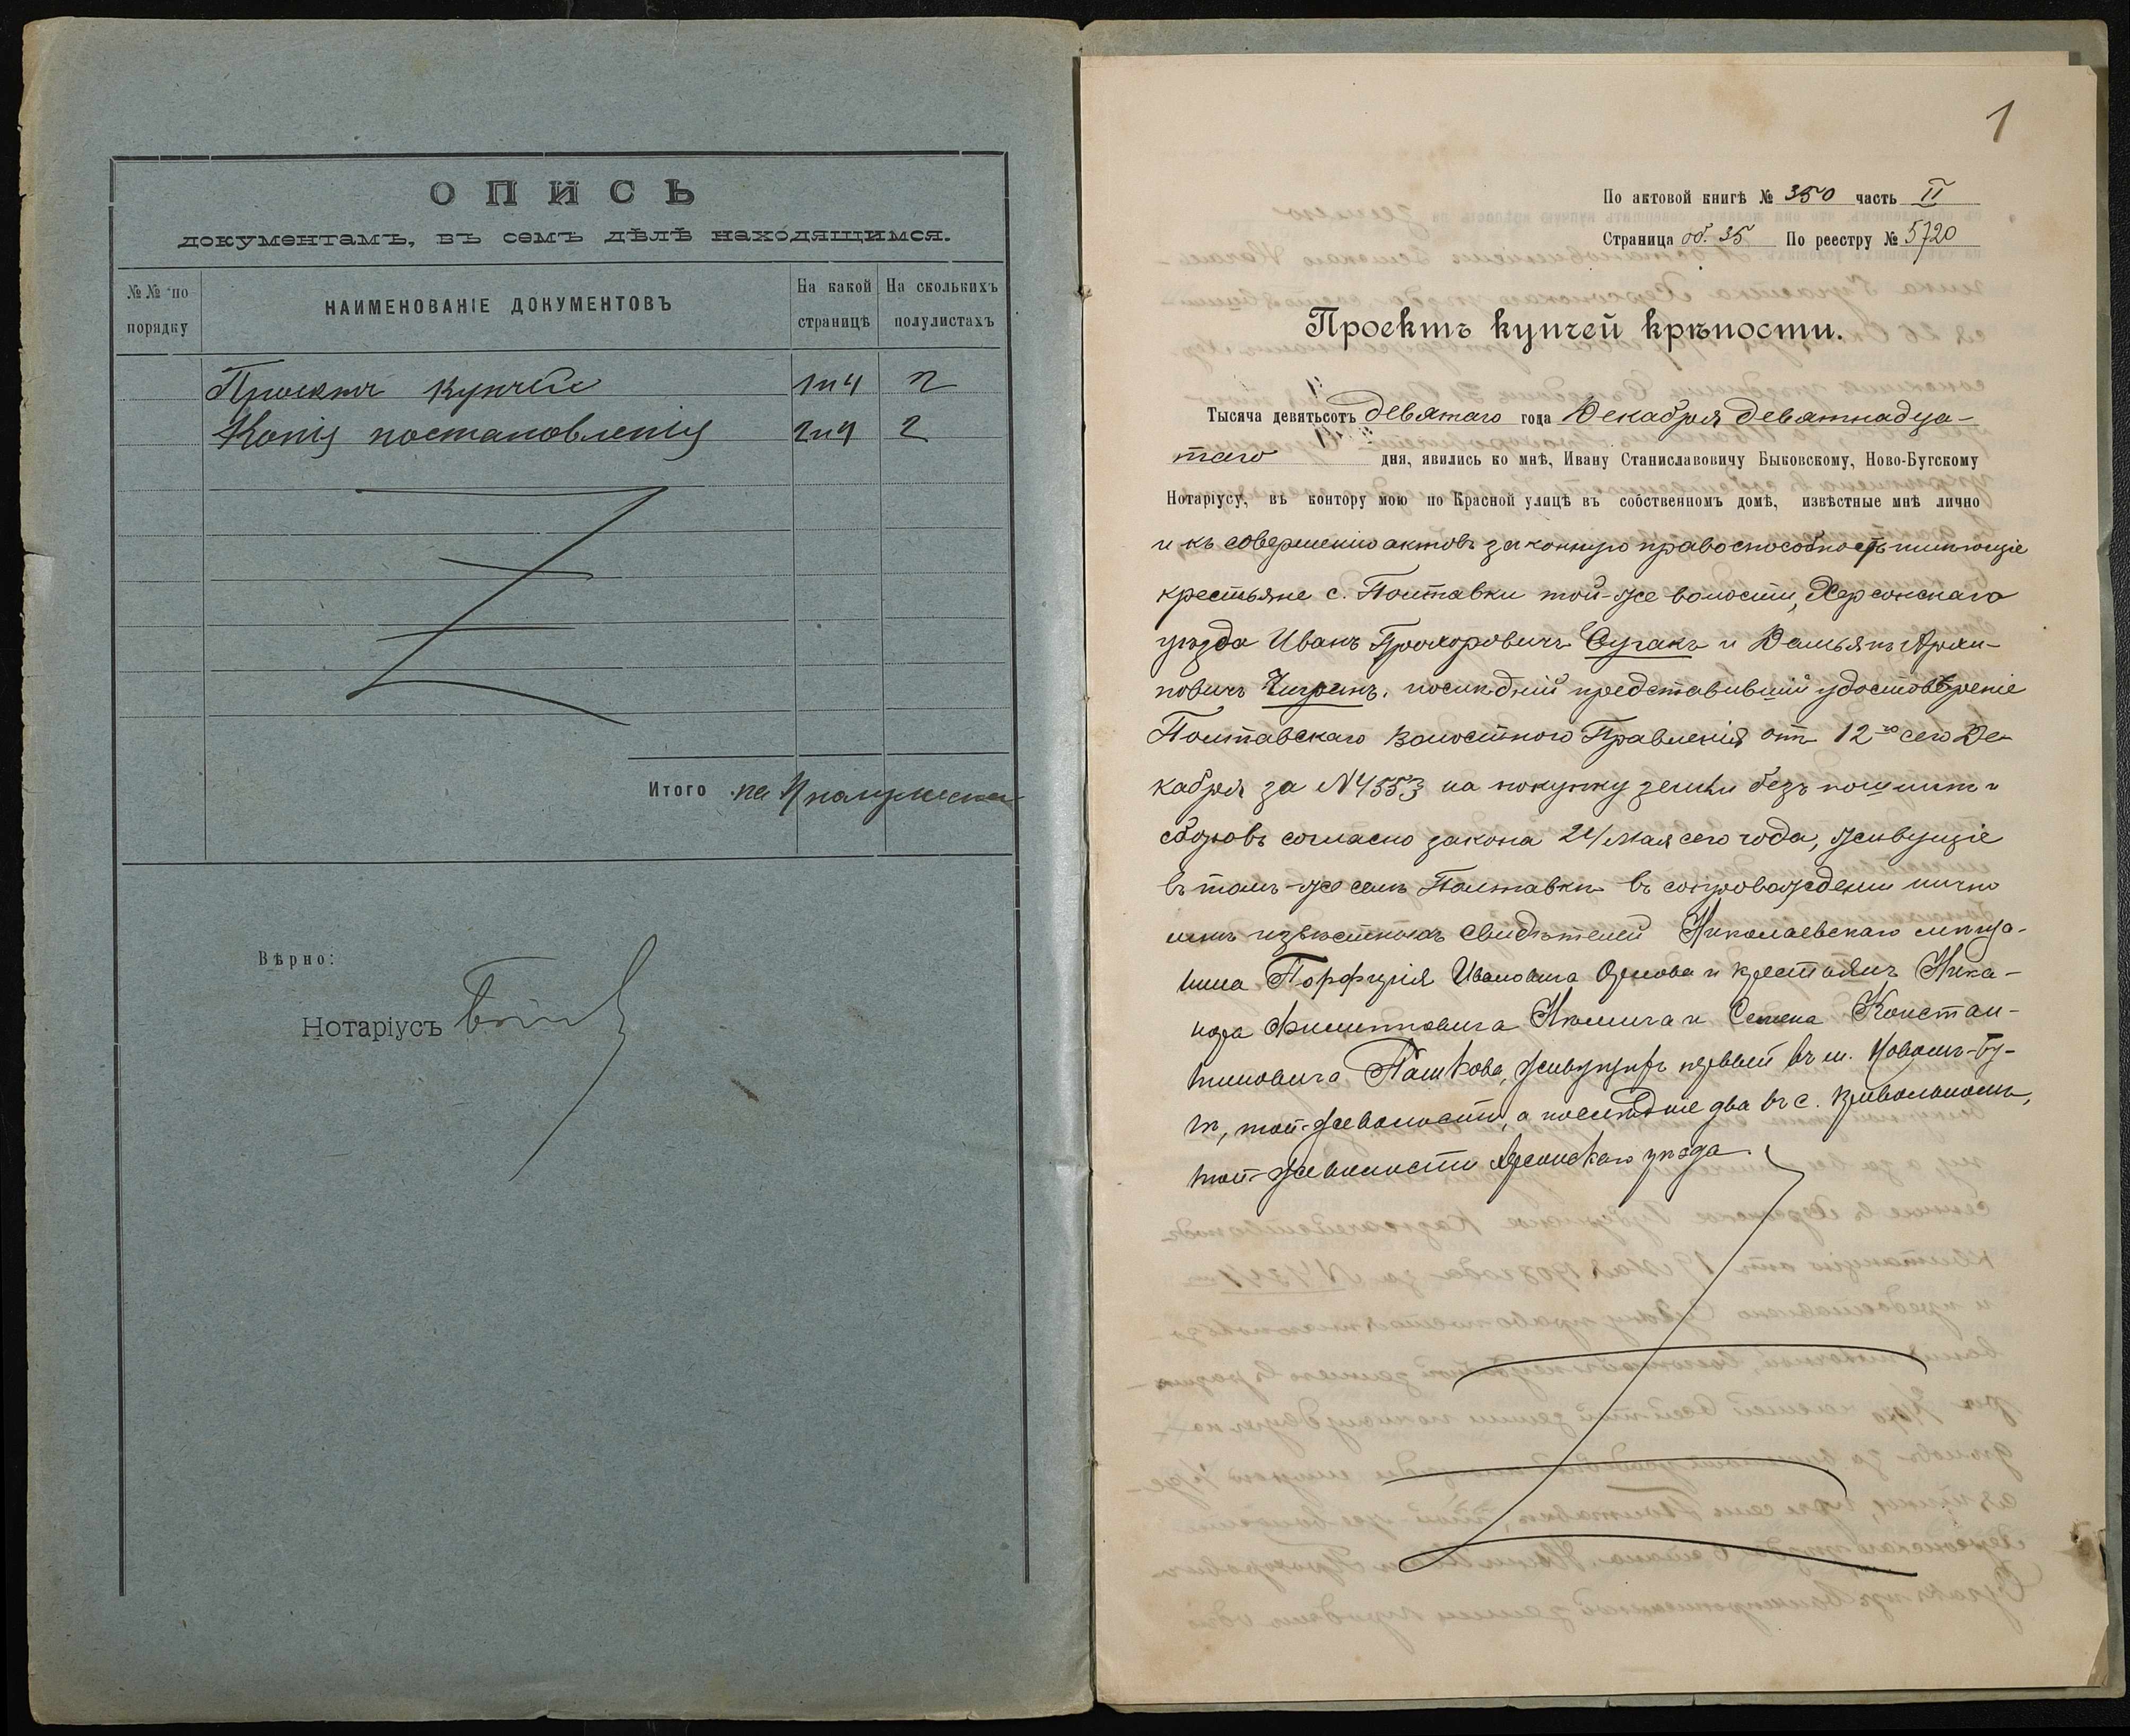 ОПИСЬ
документамъ, въ семъ дѣлѣ находящимся.
№№ по порядку
НАИМЕНОВАНІЕ ДОКУМЕНТОВЪ
На какой страницѣ
На сколькихъ полулистахъ
Проектъ купчей 1 и 4 2
Копія постановленія 2 и 4 2
Итого на 4 полулистах
Вѣрно:
Нотаріусъ
1
По актовой книгѣ № 350 часть II
Страница об. 35 По реестру № 5720
Проектъ купчей крѣпости.
Тысяча девятьсотъ девятаго года Декабря девятнадца-
таго дня, явились ко мнѣ, Ивану Станиславовичу Быковскому, Ново-Бугскому
Нотаріусу, въ контору мою по Красной улицѣ въ собственномъ домѣ, извѣстные мнѣ лично
и къ совершенію актовъ законную правоспособность имѣющіе
крестьяне с. Полтавки той-же волости, Херсонскаго
уѣзда Иванъ Прохоровичъ Сугакъ и Демьянъ Архи-
повичъ Чигринъ, послѣдній представившій удостовѣреніе
Полтавскаго Волостного Правленія отъ 12го сего Де-
кабря за N 4553 на покупку земли безъ пошлинъ и
сборовъ согласно закона 24 мая сего года, живущіе
въ томъ-же селѣ Полтавкѣ въ сопровожденіи лично
мнѣ извѣстныхъ свидѣтелей Николаевскаго мѣща-
нина Порфирія Ивановича Орлова и крестьянъ Ника-
нора Филипповича и Семена Констан-
тиновича Пашкова, живущихъ первый въ м. Новомъ-Бу-
гѣ, той-же волости, а послѣдніе два въ с. Привольномъ,
той-же волости Херсонскаго уѣзда.